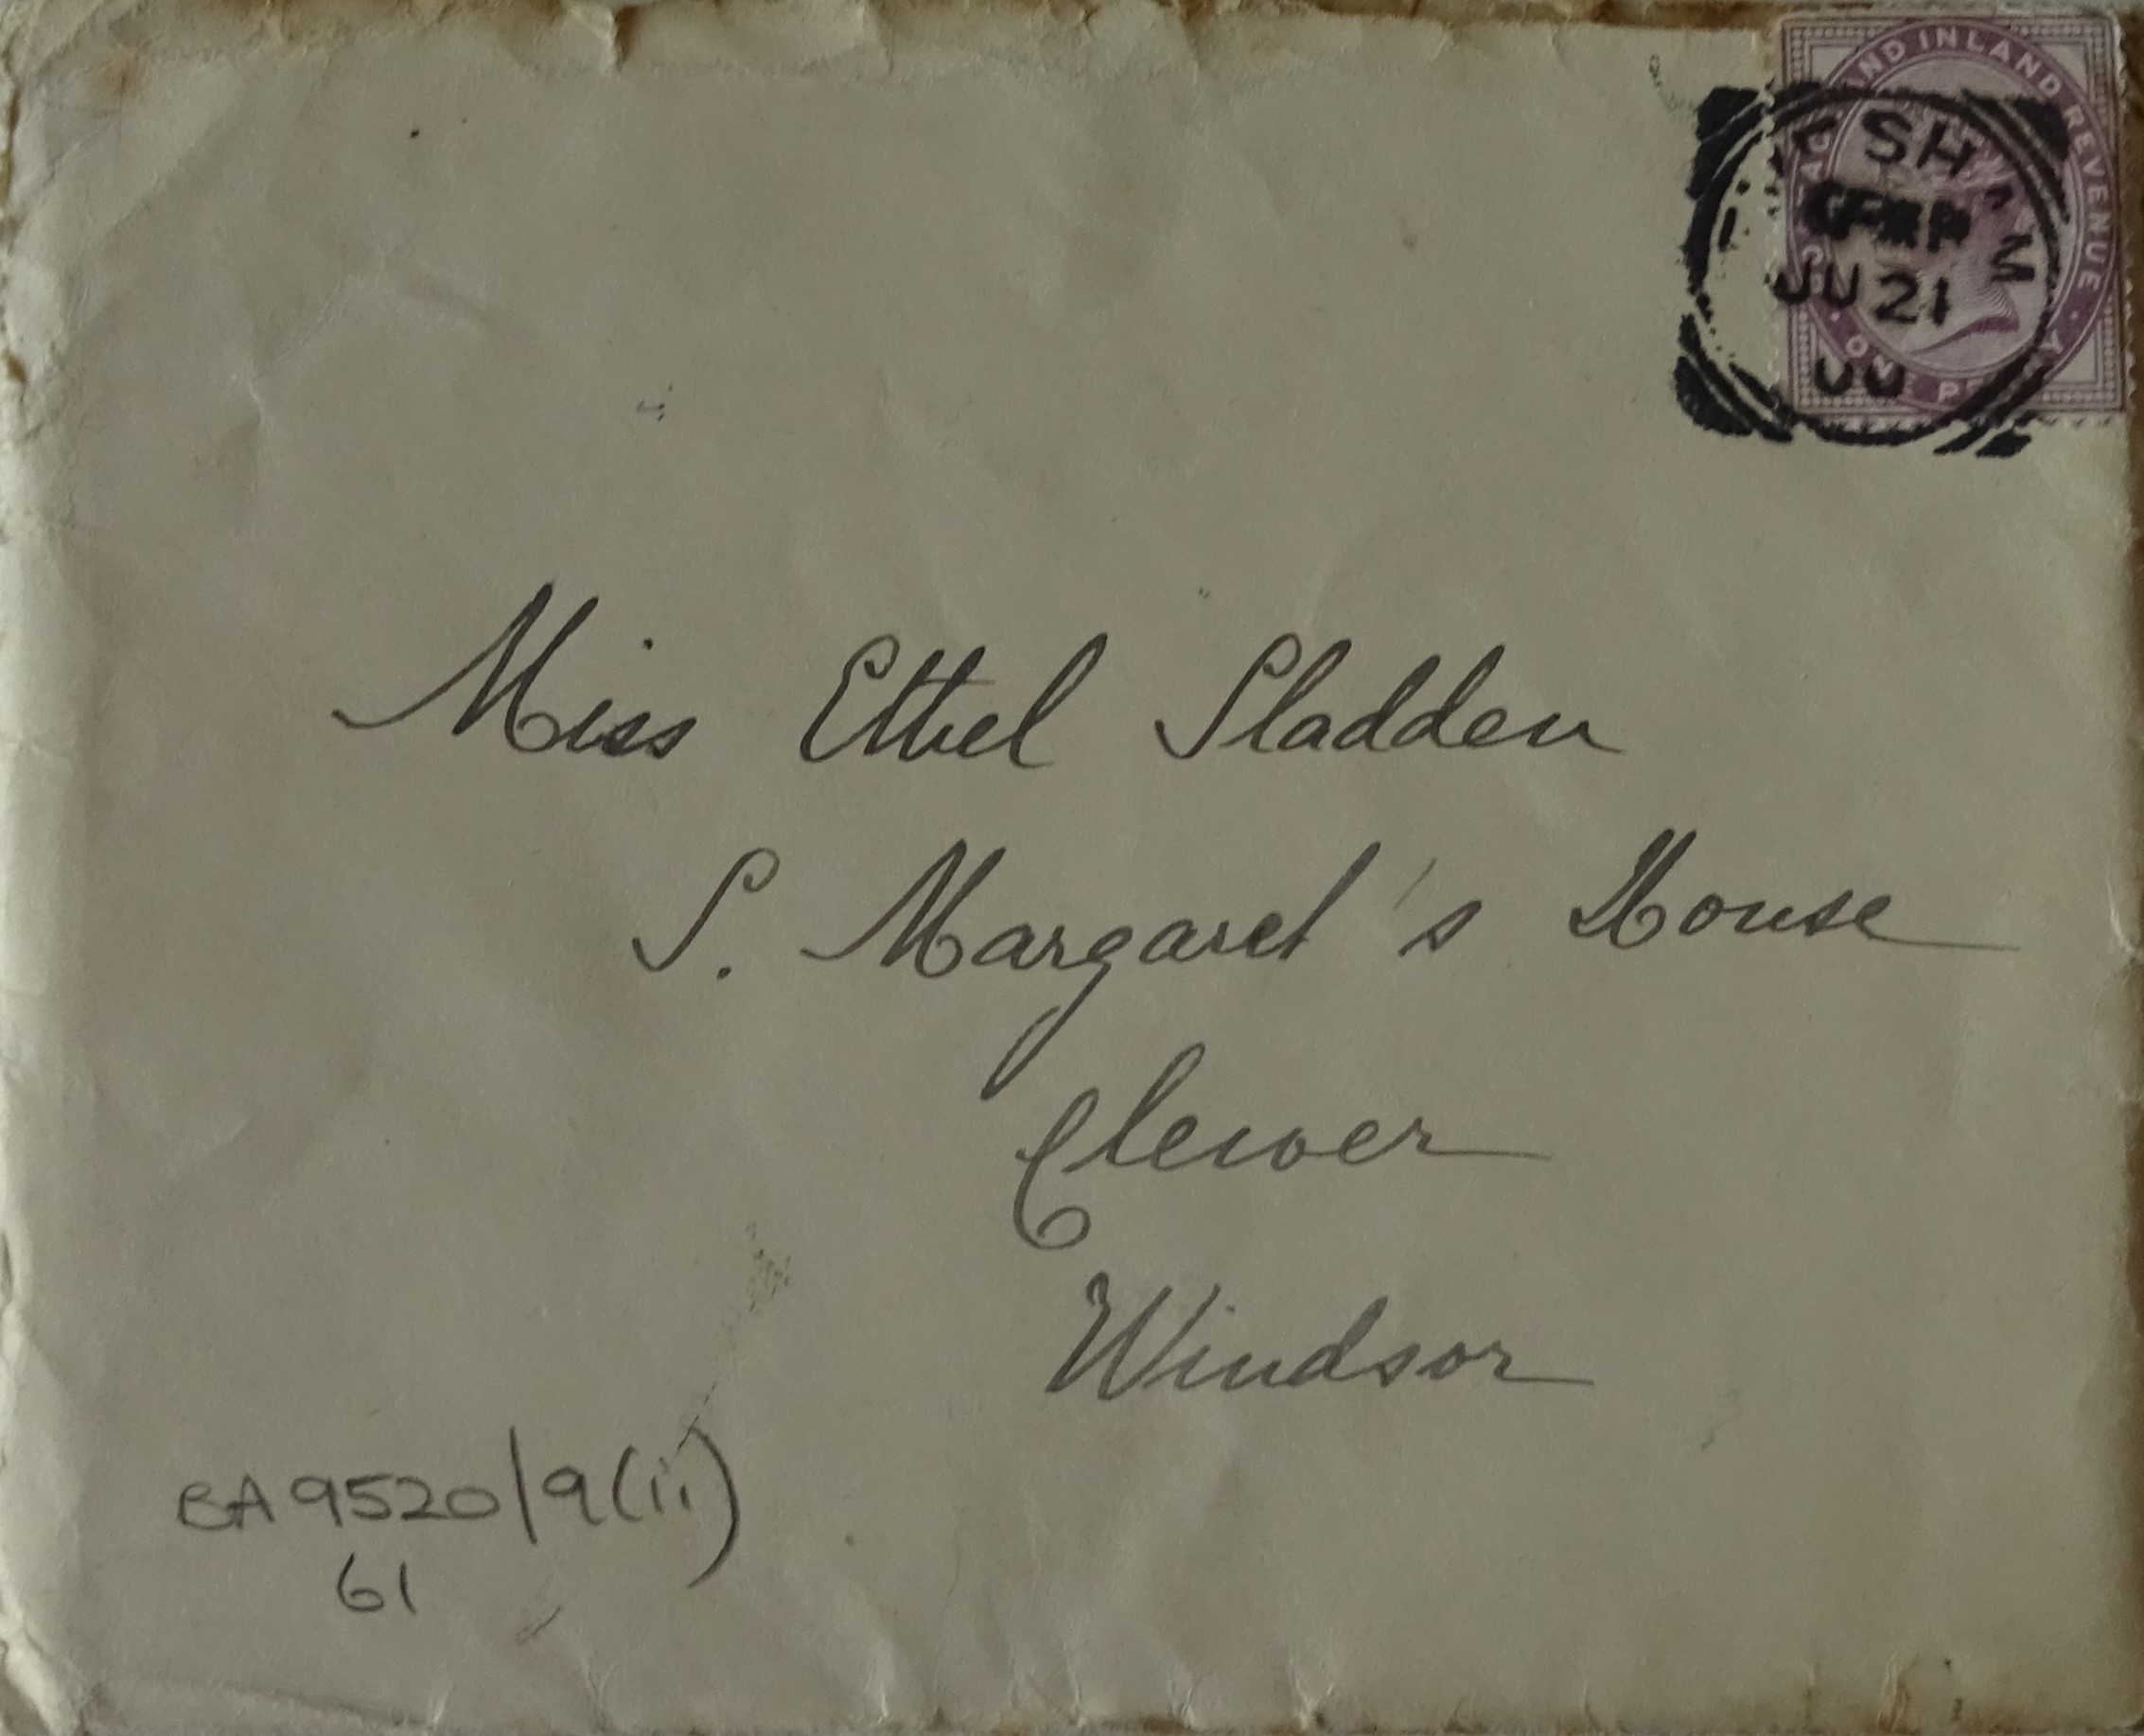 AND INLAND REVENUE
JU 21
Miss Ethel Sladden
S. Margaret's House
Clewer
Windsor
BA 9520/9(ii)
61